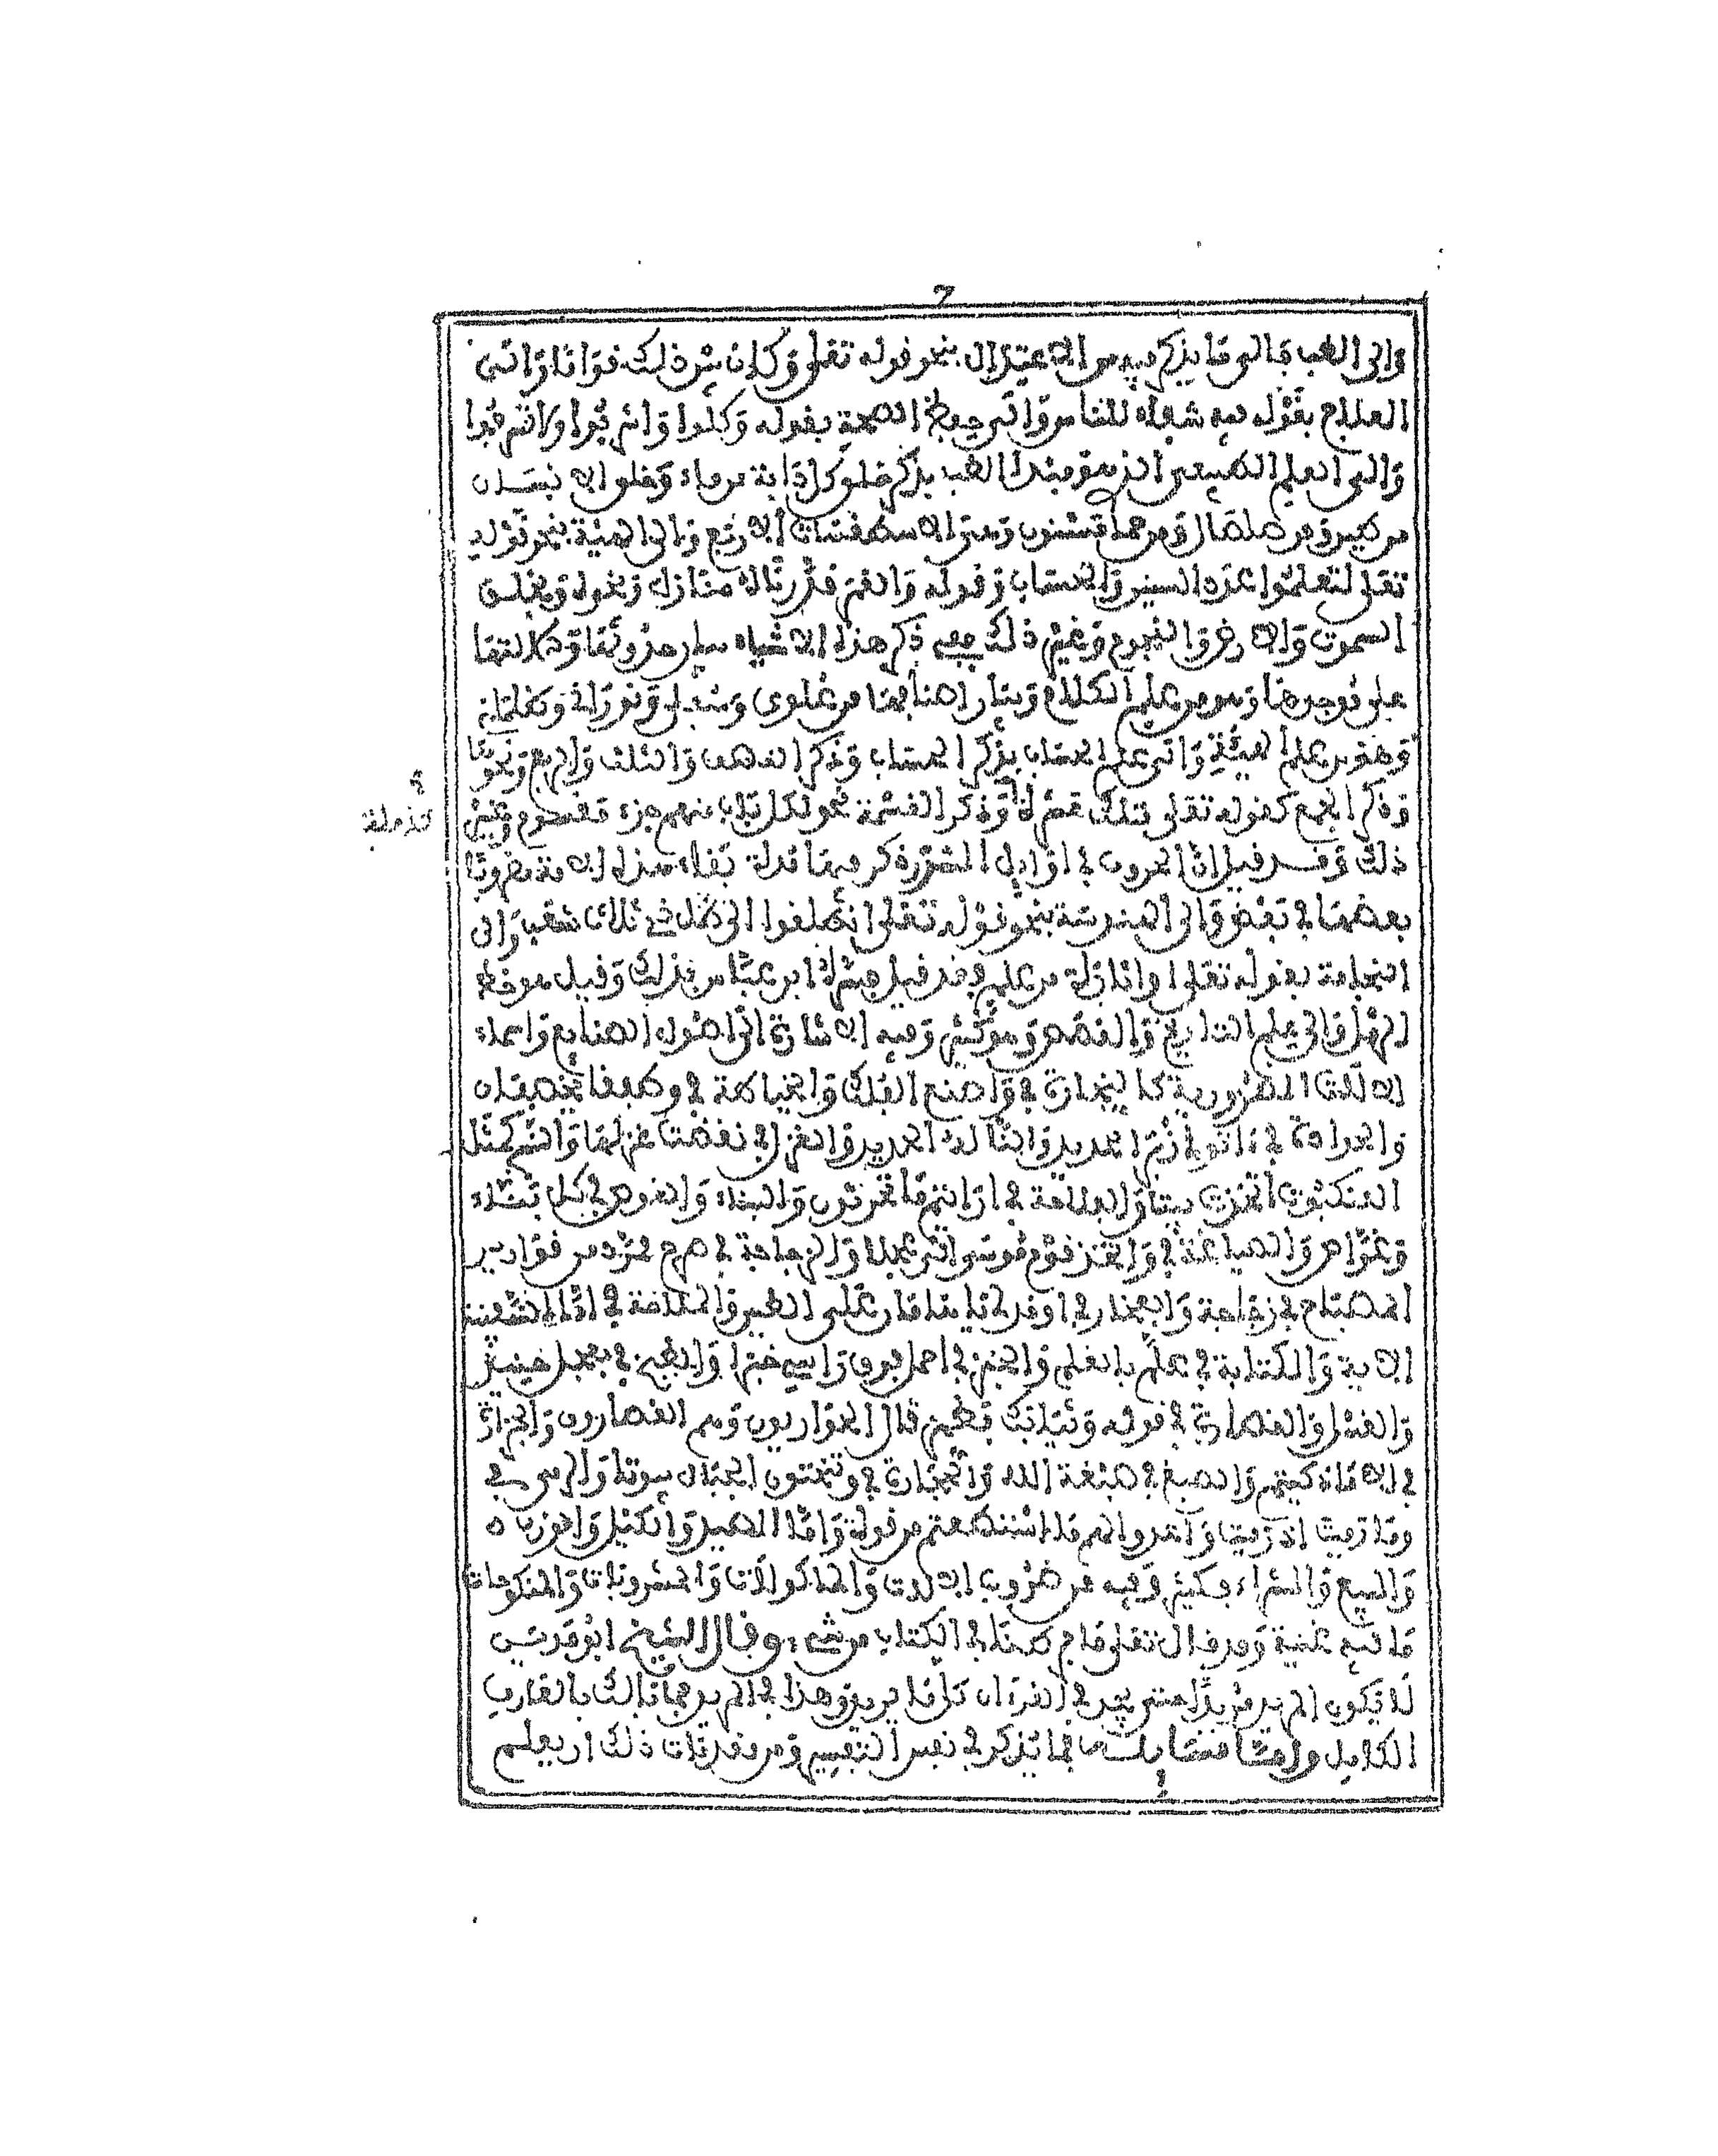 7
والى الطب بما يذكر فيه من الاعتدال بنحو قوله تعلى وكان بين ذلك قواما والى
العلاج بقوله فيه شفاء للناس والى حفظ الصحة بقوله وكلوا واشربوا ولا تسرفوا
والى العلم الطبيعي الذي هو مبدأ الطب بذكر خلق كل دابة من ماء وخلق الانسان
من طين ومن صلصال ومن حمإ مسنون وهي الاسطقسات الاربع والى الهيئة بنحو قوله
تعلى لتعلموا عدد السنين والحساب وقوله والقمر قدرناه منازل وبقوله وبخلق
السموت والارض والنجوم وغير ذلك ففي ذكر هذه الاشياء بيان حدوثها ودلالتها
على موجدها وهو من علم الكلام وبيان اصنافها من علوي وسفلي ونورانية وظلمانية
وهو من علم الهيئة والى علم الحساب بذكر الحساب وذكر النصف والثلث والربع ونحوها
وذكر الجمع كقوله تعلى تلك عشرة وذكر القسمة نحو لكل باب منهم جزء مقسوم وغير
ذلك وقد قيل ان الحروف في اوايل السور ذكر فيها مدة بقاء هذه الامة مضروبا
بعضها في بعض والى الهندسة بنحو قوله تعلى انطلقوا الى ظل ذي ثلاث شعب والى
النجامة بقوله تعلى او اثارة من علم وقد فسره ابن عباس بذلك وقيل هو خط
الرمل والى علم التاريخ والقصص وهو كثير وفيه الاشارة الى اصول الصنايع واسماء
الالات الضرورية كالنجارة في واصنع الفلك والخياطة في وطفقا يخصفان
والحدادة في ءاتوني زبر الحديد والنا له الحديد والغزل في نقضت غزلها والنسج كمثل
العنكبوت اتخذت بيتا والفلاحة في افرايتم ما تحرثون والبناء والغوص في كل بناء
وغواص والصياغة في واتخذ قوم موسى عجلا والزجاجة في صرح ممرد من قوارير
المصباح في زجاجة والفخار في اوقد لي يا هامان على الطين والملاحة في اما السفينة
الاية والكتابة في علم بالقلم والخبز في احمل فوق راسي خبزا والطبخ في بعجل حنيذ
والغسل والقصارة في قوله وثيابك فطهر قال الحواريون وهم القصارون والجزارة
في الا ما ذكيتم والصبغ في صبغة الله والحجارة في وتنحتون الجبال بيوتا والرمي في
وما رميت اذ رميت واعدوا لهم ما استطعتم من قوة واما الصيد والكيل والوزن
والبيع والشراء فكثير وفيه من ضروب الالات والماكولات والمشروبات والمنكوحات
ما فيه غنية وقد قال تعلى ما فرطنا في الكتاب من شيء وقال الشيخ ابو مدين
لا يكون المريد مريدا حتى يجد في القرءان كل ما يريد وهذا في المريد فما بالك بالعارف
الكامل مما يذكر في نفس التفسير ومن ذلك ان يعلم